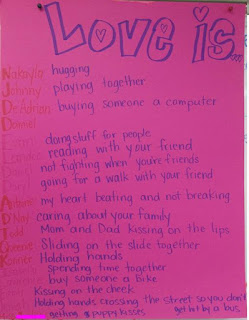 Love is...
Nakayla hugging
Johnny playing together
De Adrian buying someone a computer
Daniel
doing stuff for people
reading with your friend
not fighting when you're friends
going for a walk with your friend
my heart beating and not breaking
caring about your family
Todd Mom and Dad kissing on the lips
Sliding on the slide together
Holding hands
spending time together
buy someone a bike
Kissing on the cheek
Holding hands crossing the street so you don't get hit by a bus
getting puppy kisses